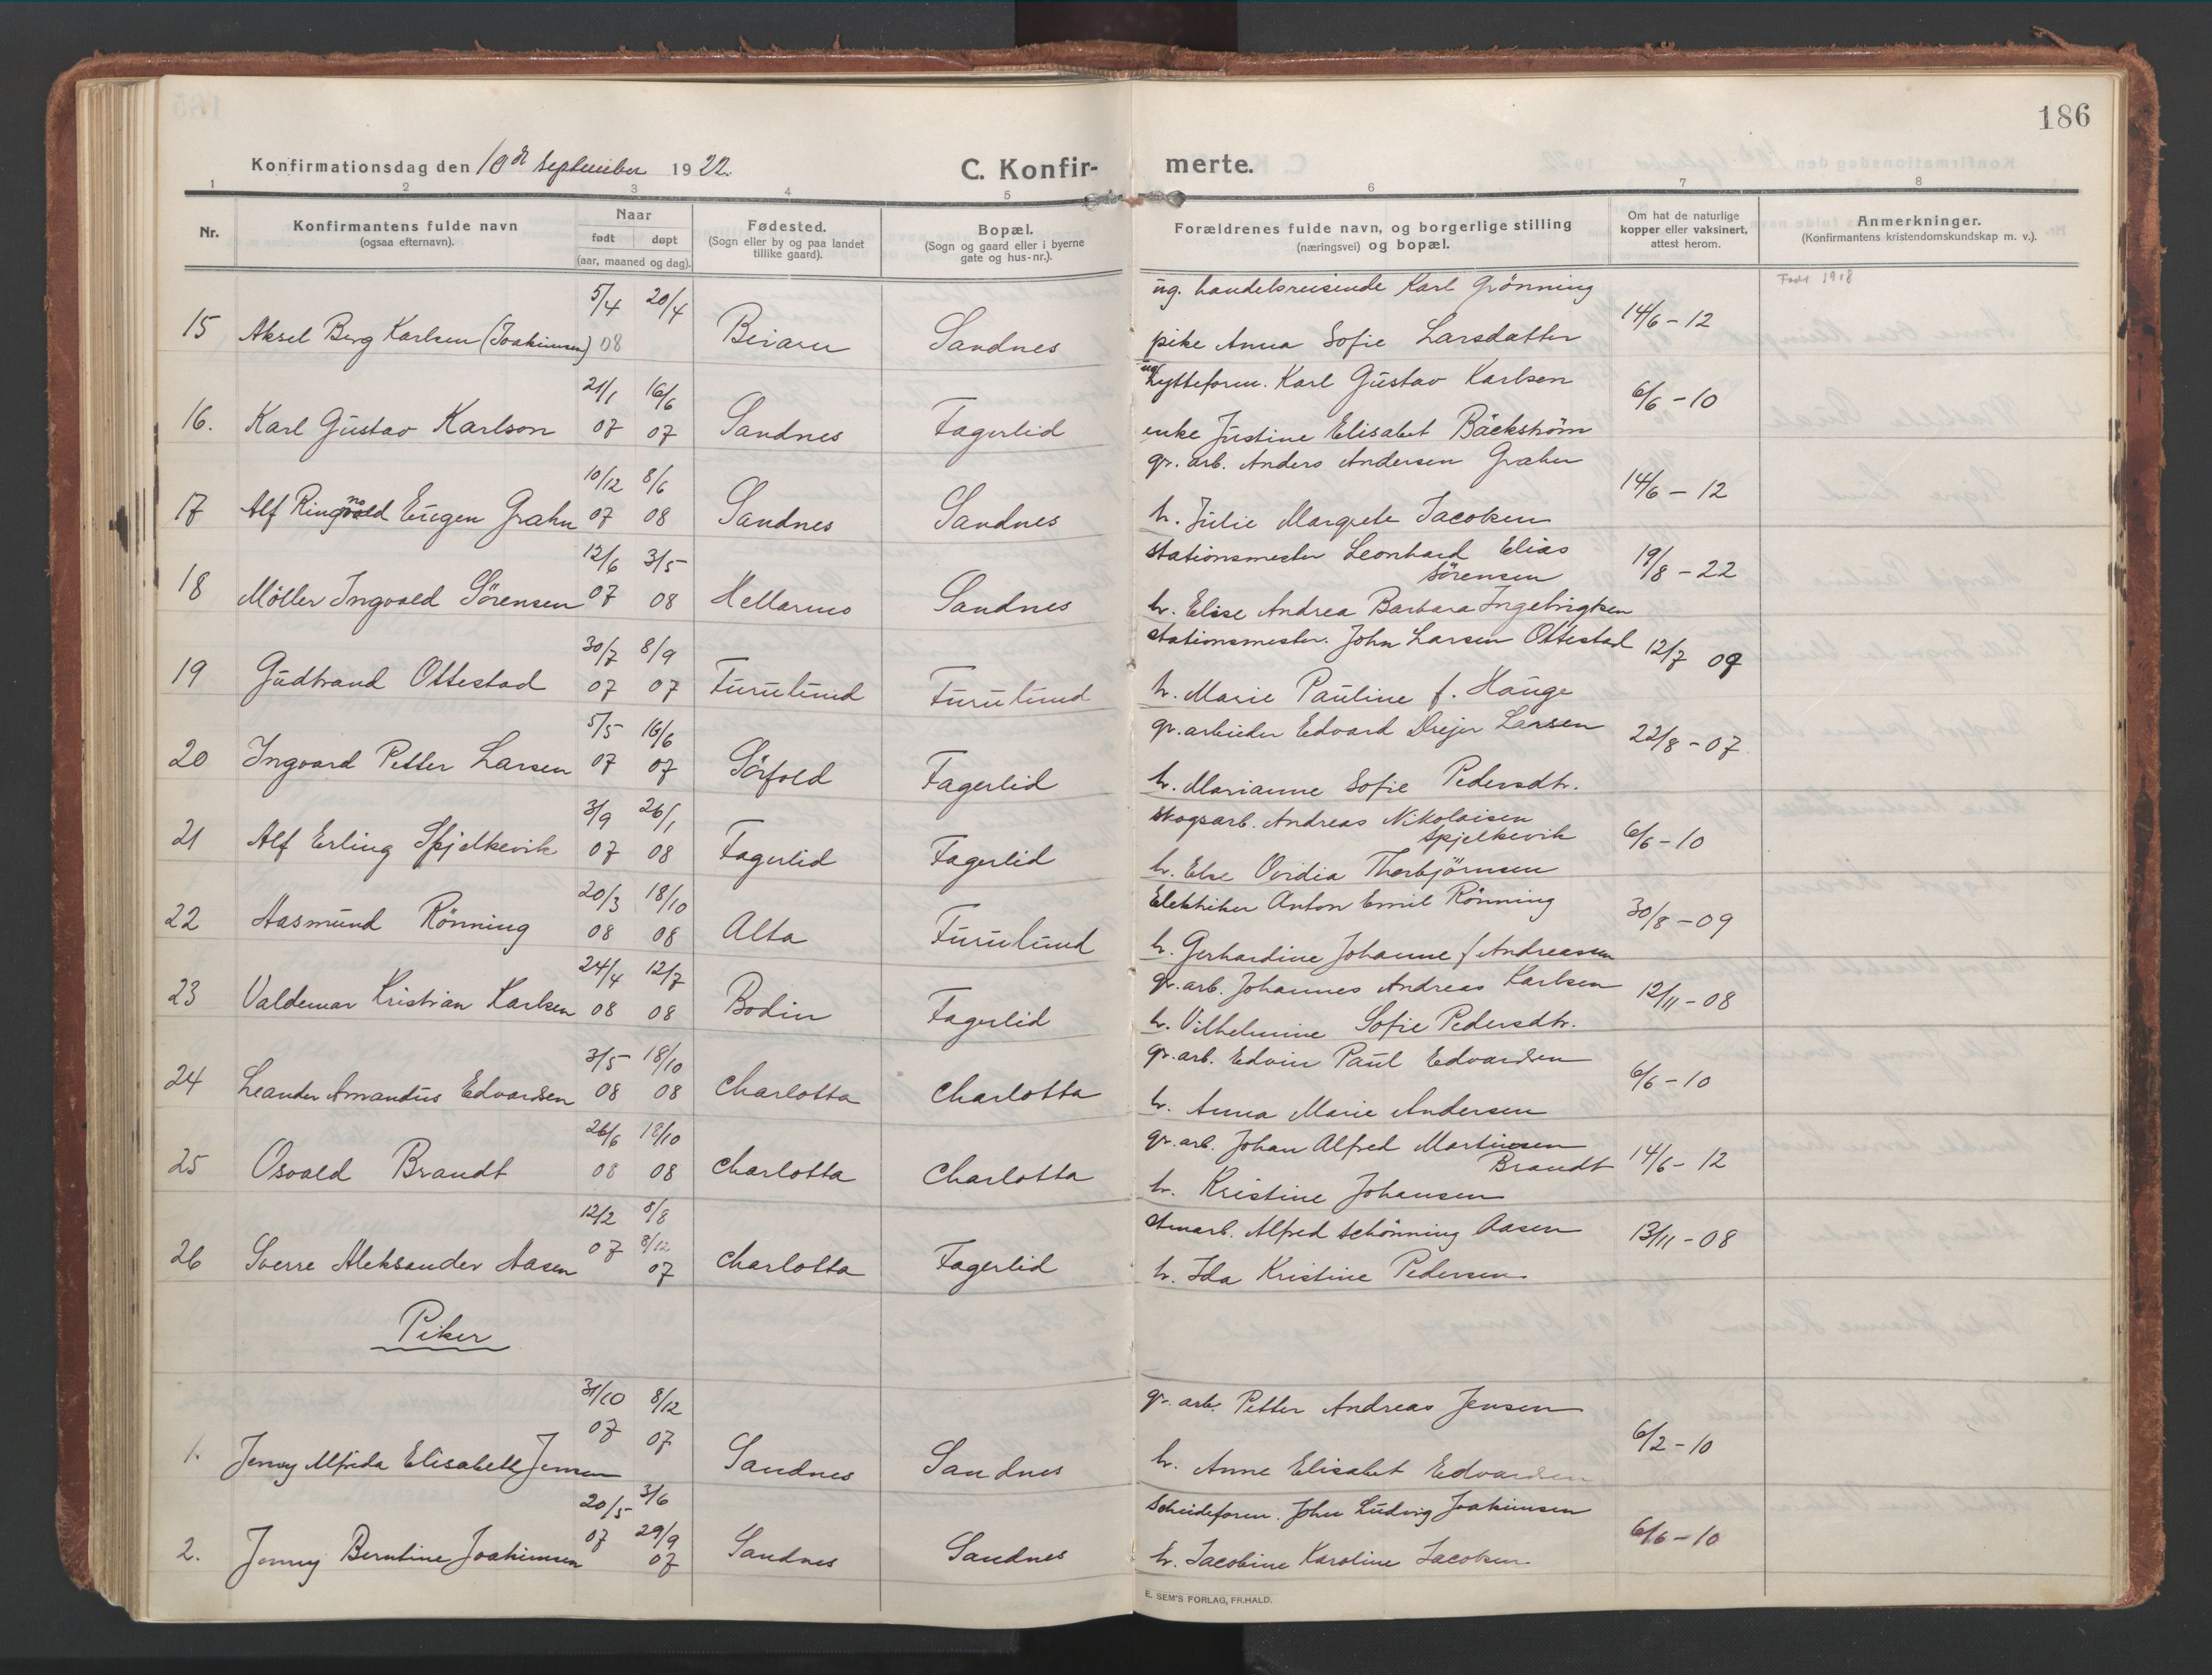 186
Konfirmationsdag den 10de September 1922.
C. Konfir-merte.
1 2 3 4 5 6 7 8
Nr.
Konfirmantens fulde navn
(ogsaa efternavn).
Naar
født døpt
(aar, maaned og dag).
Fødested.
(Sogn eller by og paa landet
tillike gaard).
Bopæl.
(Sogn og gaard eller i byerne
gate og hus-nr.).
Forældrenes fulde navn, og borgerlige stilling
(næringsvei) og bopæl.
Om hat de naturlige
kopper eller vaksinert,
attest herom.
Anmerkninger.
(Konfirmantens kristendomskundskap m. v.).
5/4 20/4 ug. handelsreisende Karl Grönning 14/6-12 Født 1908
15 Aksel Berg Karlsen (Joakimsen) 08 Beiarn Sandnes pike Anna Sofie Larsdatter
21/1 16/6 ug. hytteform. Karl Gustav Karlsen 6/6-10
16. Karl Gustav Karlson 07 07 Sandnes Fagerlid enke Justine Elisabet Bäckström
10/12 8/6 gr. arb. Anders Andersen Grahn 14/6-12
17 Alf Ring Eugen Grahn 07 08 Sandnes Sandnes h. Julie Margrete Jacobsen
12/6 3/5 stationsmester Leonhard Elias
Sörensen 19/8-22
18 Möller Ingvald Sörensen 07 08 Hellarmo Sandnes h. Elise Andrea Barbara Ingebrigtsen
30/7 8/9 stationsmester. John Larsen Ottestad 12/7 09
19 Gudbrand Ottestad 07 07 Furulund Furulund h. Marie Pauline f. Hauge
5/5 16/6 gr. arbeider Edvard Drejer Larsen 22/8-07
20 Ingvard Petter Larsen 07 07 Sörfold Fagerlid h. Marianne Sofie Pedersdtr.
3/9 26/1 skogsarb. Andreas Nikolaisen
Spjelkevik 6/6-10
21 Alf Erling Spjelkevik 07 08 Fagerlid Fagerlid h. Else Ovidia Thorbjörnsen
20/3 18/10 Elektriker Anton Emil Rönning 30/8-09
22 Aasmund Rönning 08 08 Alta Furulund h. Gerhardine Johanne f Andreasen
24/4 12/7 gr. arb. Johannes Andreas Karlsen 12/11-08
23 Valdemar Kristian Karlsen 08 08 Bodin Fagerlid h. Vilhelmine Sofie Pedersdtr.
3/5 18/10 gr. arb. Edvin Paul Edvardsen 6/6-10
24 Leander Amandus Edvardsen 08 08 Charlotta Charlotta h. Anna Marie Andersen
26/6 18/10 gr. arb. Johan Alfred Martinsen
Brandt 14/6-12
25 Osvald Brandt 08 08 Charlotta Charlotta h. Kristine Johansen
12/2 8/8 Alfred Schönning Aasen 13/11-08
26 Sverre Aleksander Aasen 07 8/12 07 Charlotta Fagerlid h. Ida Kristine Pedersen
Piker
31/10 8/12 gr. arb. Petter Andreas Jensen 6/2-10
1. Jenny Alfrida Elisabeth Jensen 07 07 Sandnes Sandnes h. Anne Elisabet Edvardsen
20/5 3/6 Scheideform. John Ludvig Joakimsen 6/6-10
2. Jenny Berntine Joakimsen 07 29/9 07 Sandnes Sandnes h. Jacobine Karoline Jacobsen
E. SEM'S FORLAG, FR.HALD.